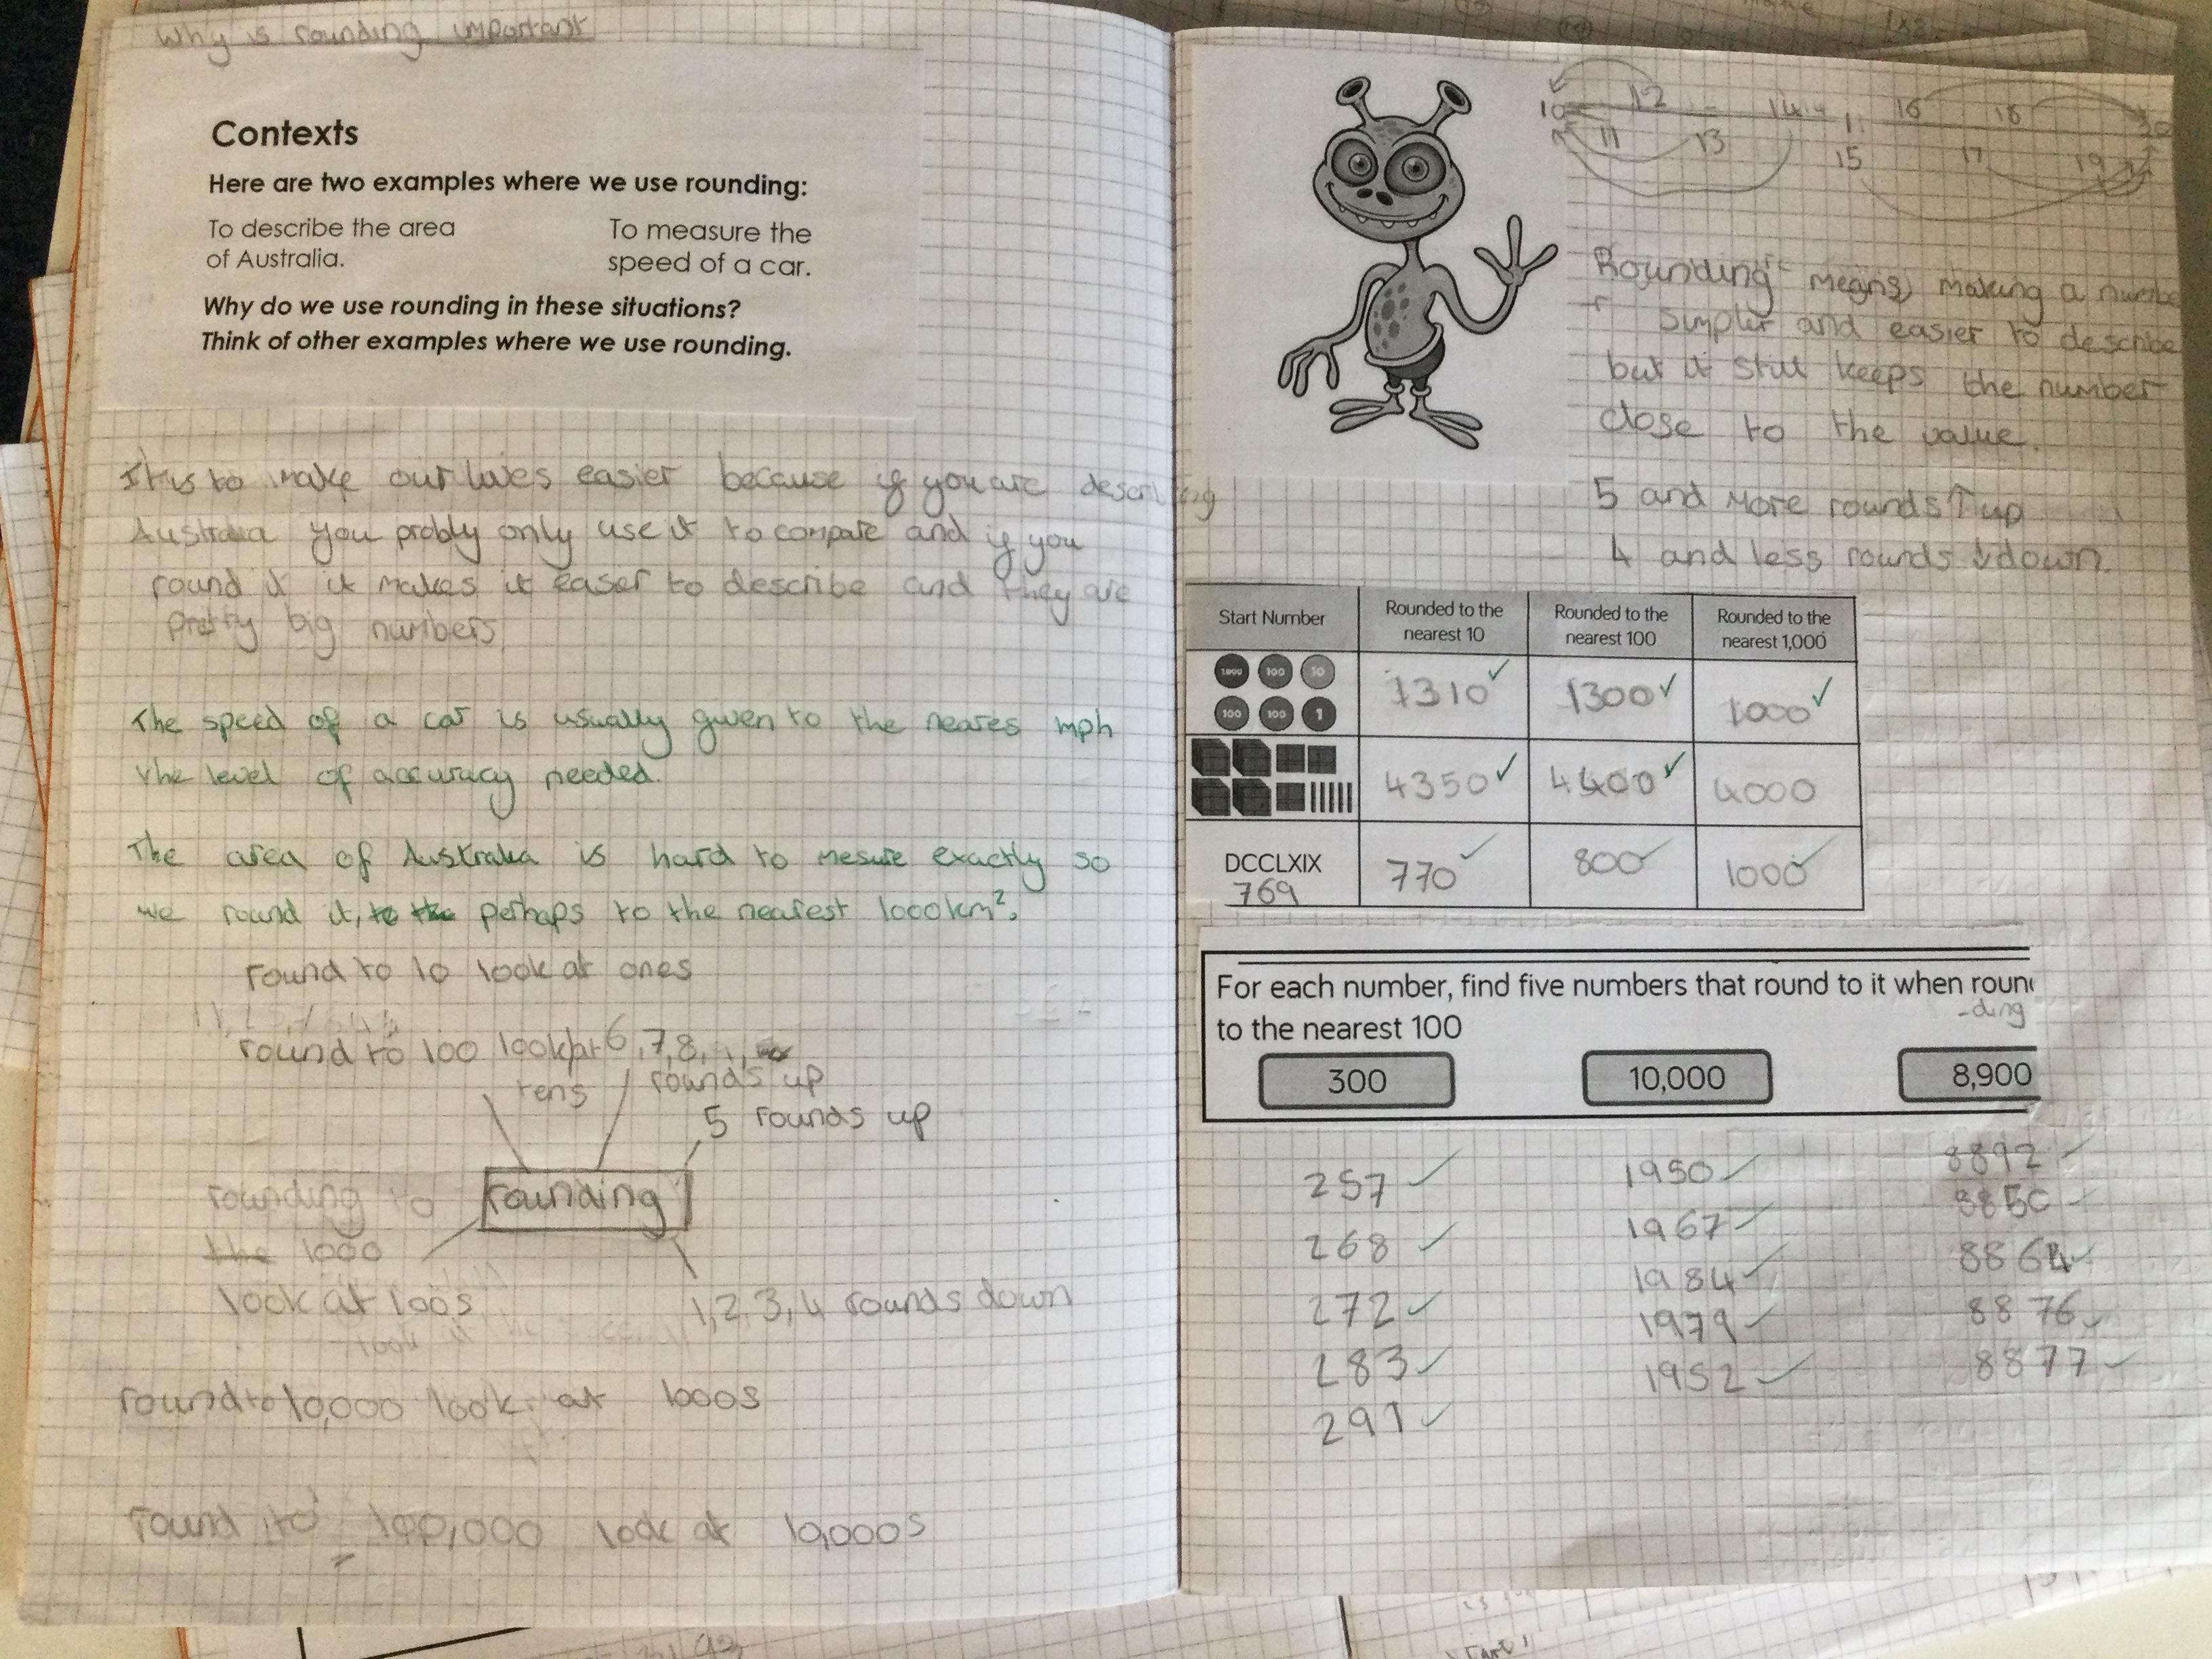 Why is rounding important
Contexts
Here are two examples where we use rounding:
To describe the area
of Australia.
To measure the
speed of a car.
Why do we use rounding in these situations?
Think of other examples where we use rounding.
It is to make our lives easier because if you are describing
Australia you probly only use it to compare and if you
round it it makes it easer to describe and they are
pretty big numbers
The speed of a car is usually given to the neares mph
the level of accuracy needed.
The area of Australia is hard to mesure exactly so
we round it, to the perhaps to the nearest 1000km².
round to 10 look at ones
round to 100 look at
tens
6, 7, 8,
rounds up
5 rounds up
rounding
rounding to
the 1000
look at 100s
1, 2, 3, 4 rounds down
round to 10,000 look at 1000s
round to 100,000 look at 10,000s
10 12 14 16 18 20
11 13 15 17 19
Rounding means making a number
simpler and easier to describe
but it still keeps the number
close to the value.
5 and more rounds ↑ up
4 and less rounds ↓ down.
Start Number
Rounded to the
nearest 10
Rounded to the
nearest 100
Rounded to the
nearest 1,000
1000 100 10
100 100 1
1310 ✓ 1300 ✓ 1000 ✓
4350 ✓ 4400 ✓ 4000
DCCLXIX
769
770 ✓ 800 ✓ 1000 ✓
For each number, find five numbers that round to it when roun
-ding
to the nearest 100
300 10,000 8,900
257 ✓ 1950 ✓ 8892 ✓
268 ✓ 1967 ✓ 8850 ✓
272 ✓ 1984 ✓ 8864 ✓
283 ✓ 1979 ✓ 8876 ✓
291 ✓ 1952 ✓ 8877 ✓